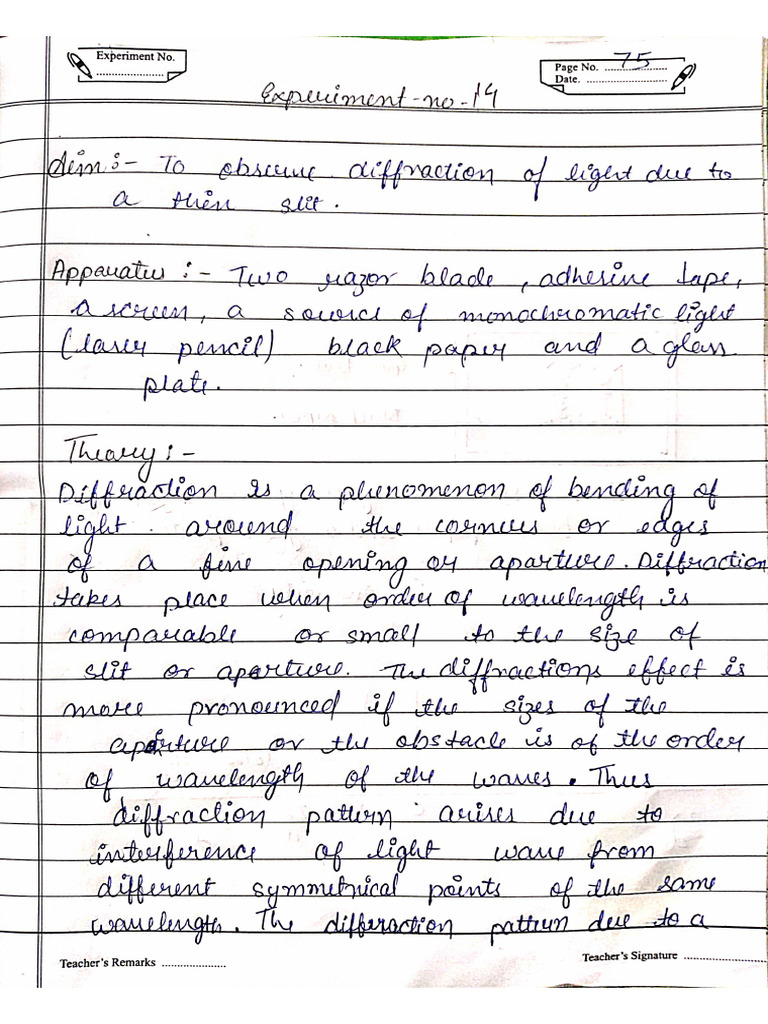 Experiment No.
....................
Page No. 75
Date. ........................
Experiment-no-14
Aim:- To observe diffraction of light due to
a thin slit.
Apparatus :- Two razor blade, adhesive tape,
a screen, a source of monochromatic light
(laser pencil) black paper and a glass
plate.
Theory:-
Diffraction is a phenomenon of bending of
light around the corners or edges
of a fine opening or aparture. Diffraction
takes place when order of wavelength is
comparable or small to the size of
slit or aperture. The diffractions effect is
more pronounced if the sizes of the
aperture or the obstacle is of the order
of wavelength of the waves. Thus
diffraction pattern arises due to
interference of light wave from
different symmetrical points of the same
wavelength. The differaction pattern due to a
Teacher's Remarks ....................
Teacher's Signature ........................